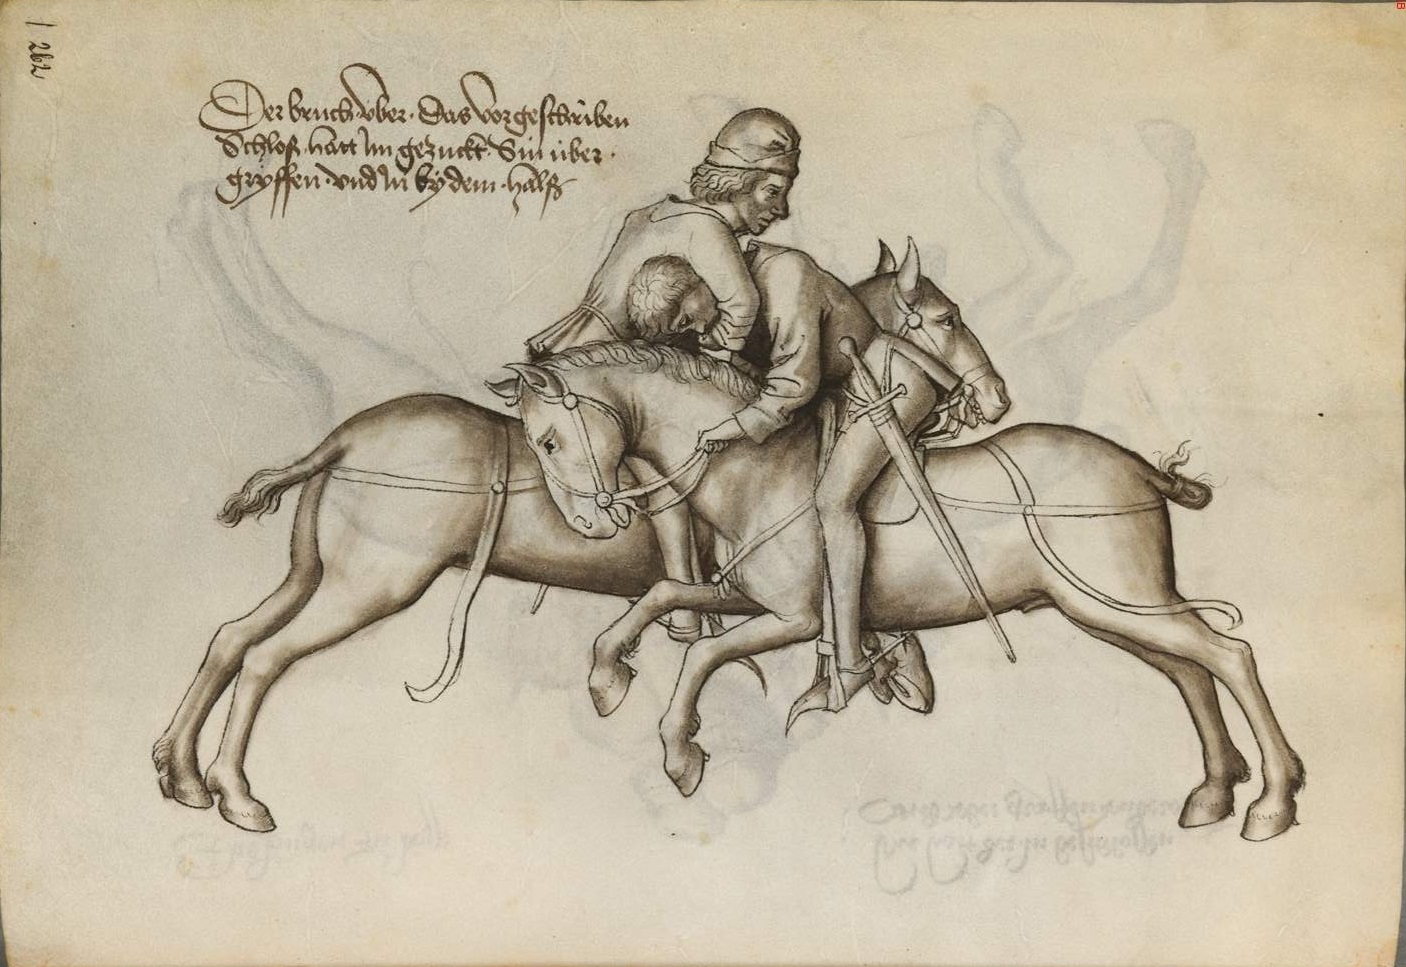 262
Der bruch über · das vorgeschriben
Schloß · hatt Im gezuckt · Sin über ·
gryffen · vnd In by dem · halß